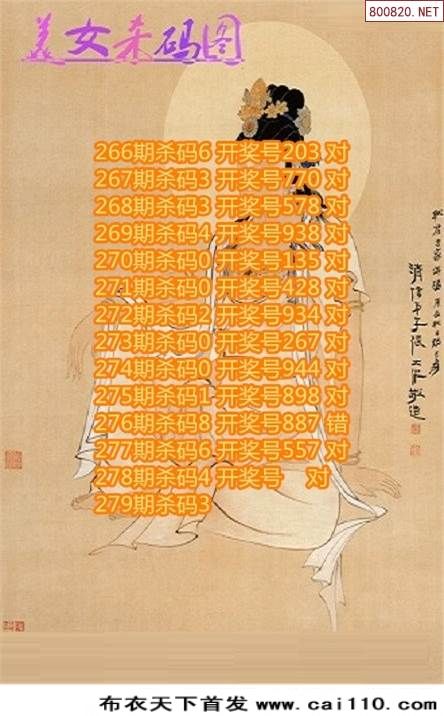 800820.NET
美女杀码图
266期杀码6 开奖号203 对
267期杀码3 开奖号770 对
268期杀码3 开奖号578 对
269期杀码4 开奖号938 对
270期杀码0 开奖号135 对
271期杀码0 开奖号428 对
272期杀码2 开奖号934 对
273期杀码0 开奖号267 对
274期杀码0 开奖号944 对
275期杀码1 开奖号898 对
276期杀码8 开奖号887 错
277期杀码6 开奖号557 对
278期杀码4 开奖号 对
279期杀码3
布衣天下首发 www.cai110.com